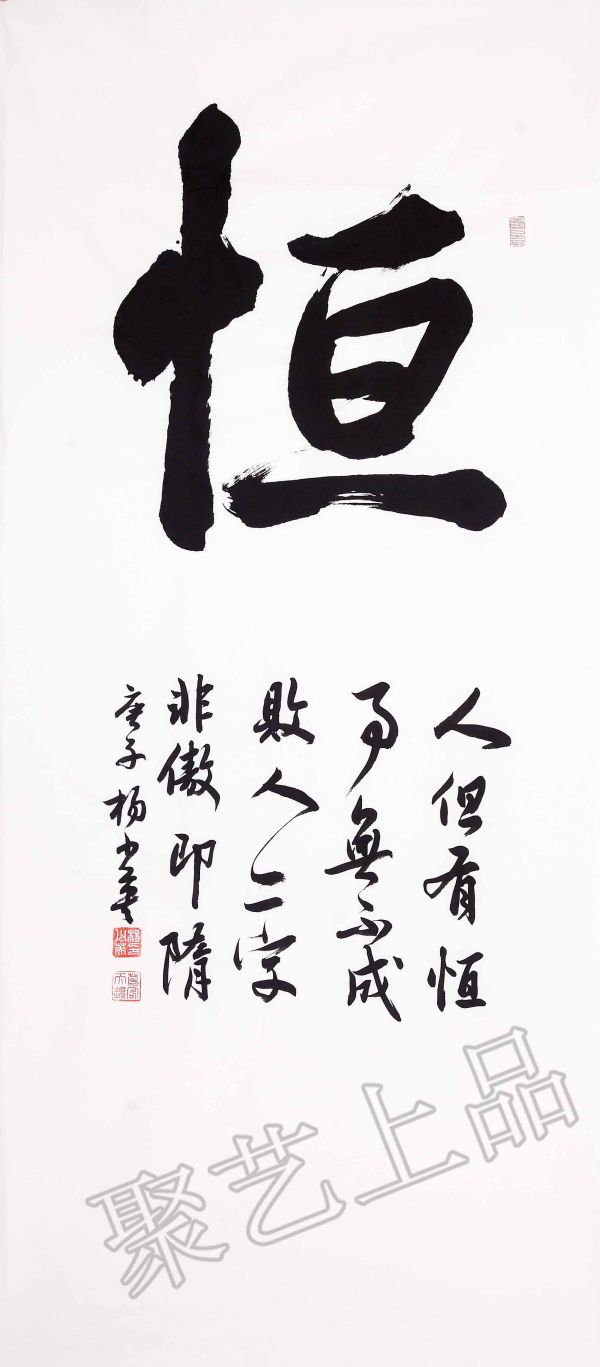 恒
人但有恒
事無不成
敗人二字
非傲即隋
庚子杨少
聚艺上品